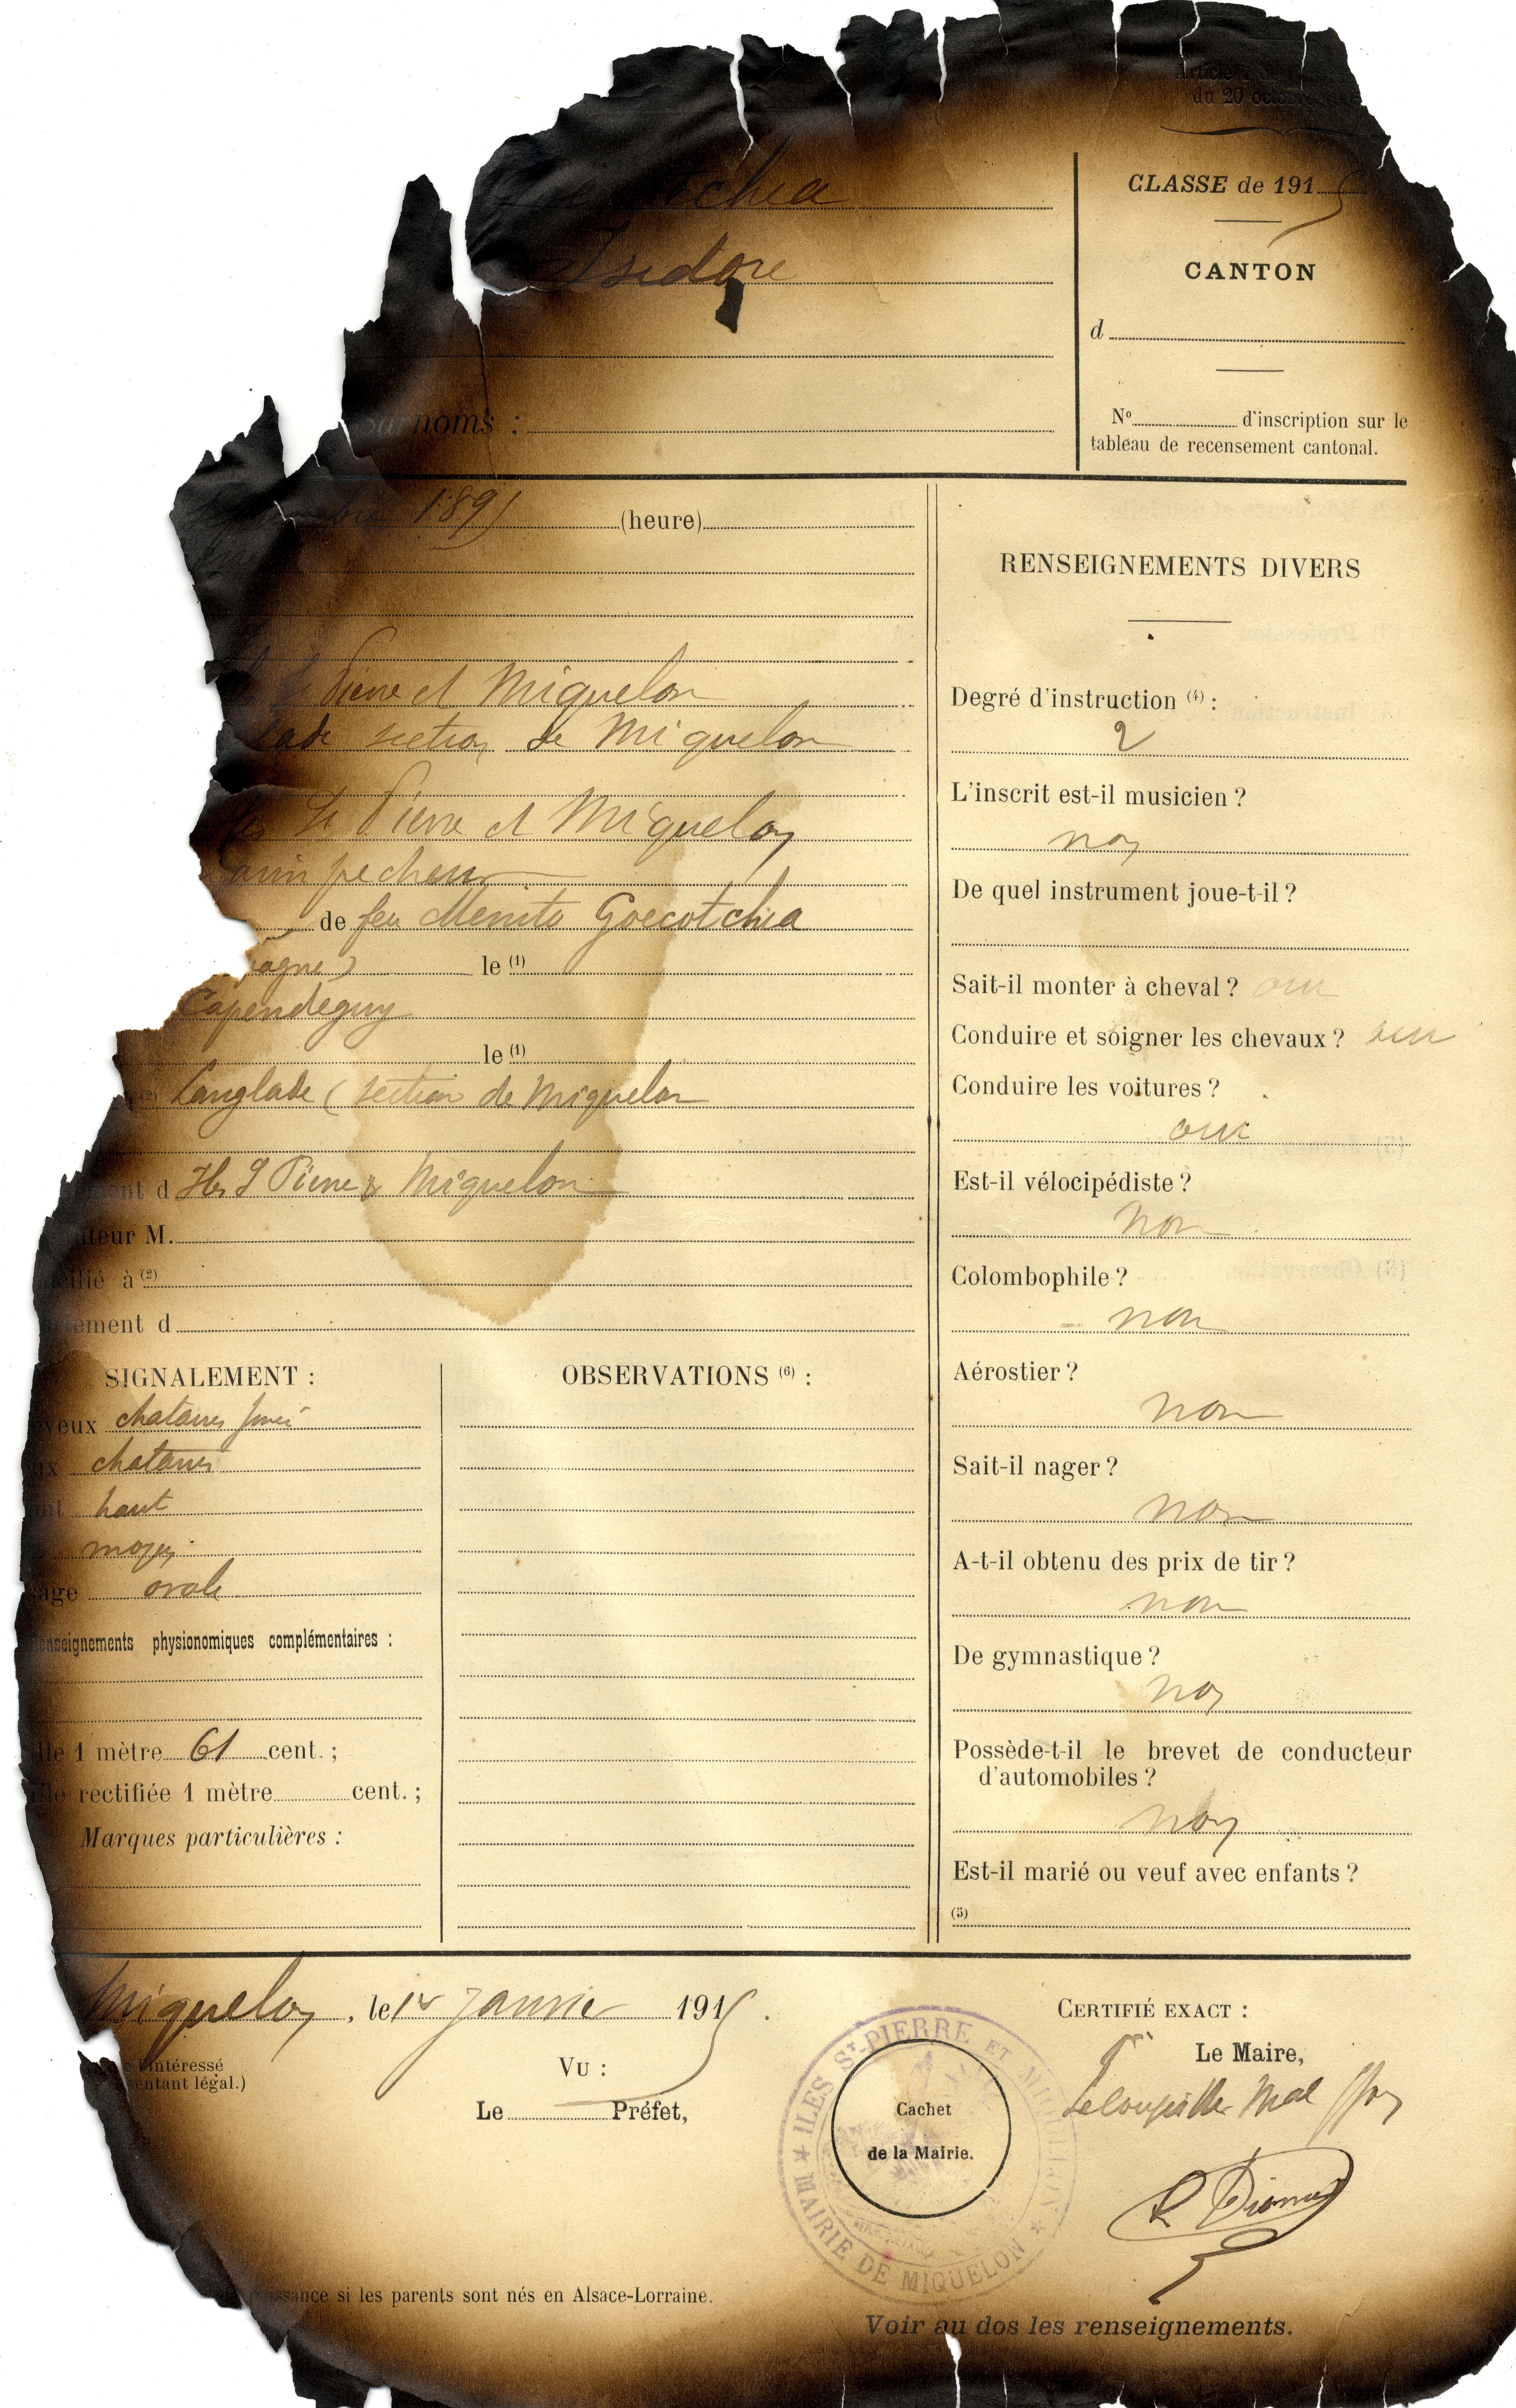 Article
du 20 octobre
tchea
Isidore
Surnoms :
CLASSE de 1915
CANTON
d
N° d'inscription sur le
tableau de recensement cantonal.
bre 1895 (heure)
St Pierre et Miquelon
lade section de Miquelon
St Pierre et Miquelon
arin pecheur
de feu Menito Goecotchea
pagne) le (1)
Capendeguy
le (1)
(2) Langlade (section de Miquelon
ement d Iles S Pierre & Miquelon
uteur M.
icilié à (2)
artement d
SIGNALEMENT :
eveux chatains foncé
ux chatains
ont haut
moyen
sage ovale
enseignements physionomiques complémentaires :
lle 1 mètre 61 cent. ;
lle rectifiée 1 mètre cent. ;
Marques particulières :
OBSERVATIONS (6) :
RENSEIGNEMENTS DIVERS
Degré d'instruction (4) :
2
L'inscrit est-il musicien ?
non
De quel instrument joue-t-il ?
Sait-il monter à cheval ? oui
Conduire et soigner les chevaux ? oui
Conduire les voitures ?
oui
Est-il vélocipédiste ?
non
Colombophile ?
non
Aérostier ?
non
Sait-il nager ?
non
A-t-il obtenu des prix de tir ?
non
De gymnastique ?
non
Possède-t-il le brevet de conducteur
d'automobiles ?
non
Est-il marié ou veuf avec enfants ?
(5)
Miquelon, le 12 Janvier 1915.
l'intéressé
sentant légal.)
VU :
Le Préfet,
CERTIFIÉ EXACT :
Le Maire,
Cachet
de la Mairie.
ILES ST-PIERRE ET MIQUELON
MAIRIE DE MIQUELON
naissance si les parents sont nés en Alsace-Lorraine.
Voir au dos les renseignements.